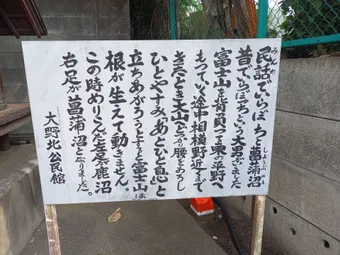 民話でいらぼっちと菖蒲沼
昔でいらぼっちという大男がいました
富士山を背負って東の平野へ
もっていく途中相模野近くまで
きたとき大山にどっかり腰をおろし
ひとやすみ。あとひと息と
立ちあがろうとすると富士山は
根が生えて動きません。
この時めりこんだ左足が鹿沼
右足が菖蒲沼となりました。
大野北公民館